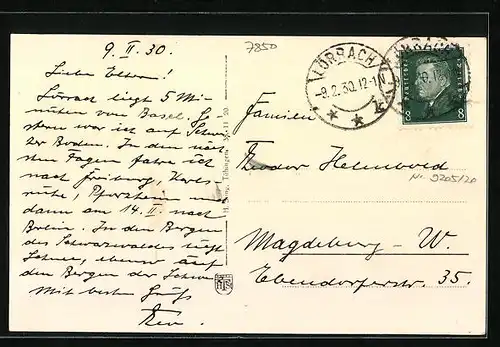 9. II. 30.
Liebe Eltern!
Lörrach liegt 5 Mi-
nuten von Basel. Ge-
stern war ich auf Schwei-
zer Boden. In den näch-
sten Tagen fahre ich
nach Freiburg, Karls-
ruhe, Pforzheim und
dann am 14. II. nach
Berlin. In den Bergen
des Schwarzwaldes liegt
Schnee, ebenso auf
den Bergen der Schweiz
Mit besten Gruß
7850
LÖRRACH
-9.2.30.12-1
LÖRRACH
8 8
Familien
Theodor Helmbold
Magdeburg - W.
Ebendorferstr. 35.
Tübingen